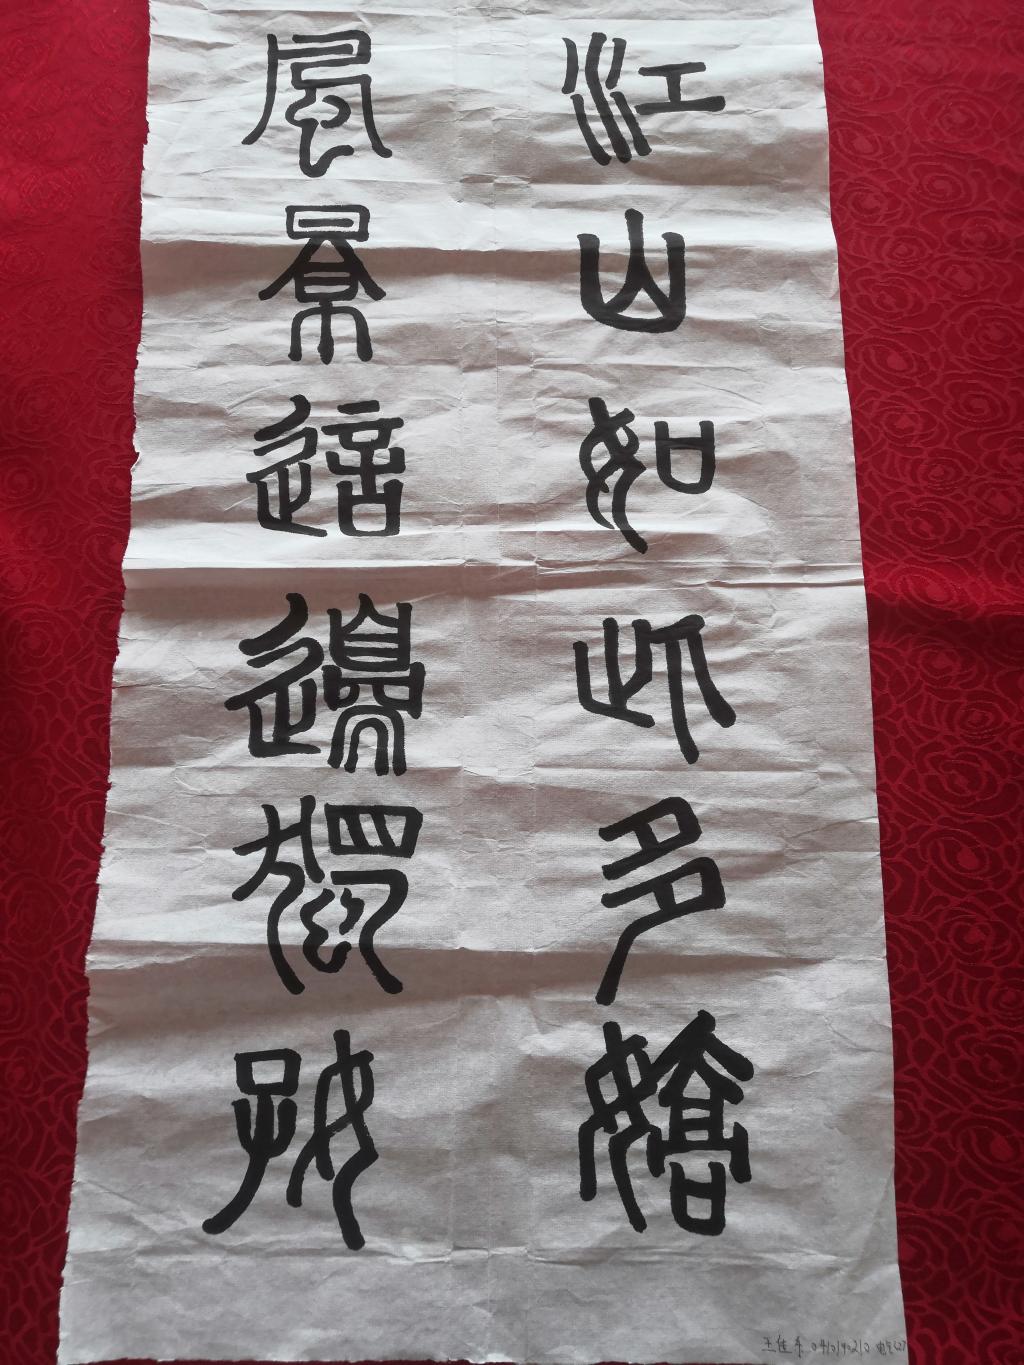 江山如此多嬌
風景這邊獨好
王佳 0410190210